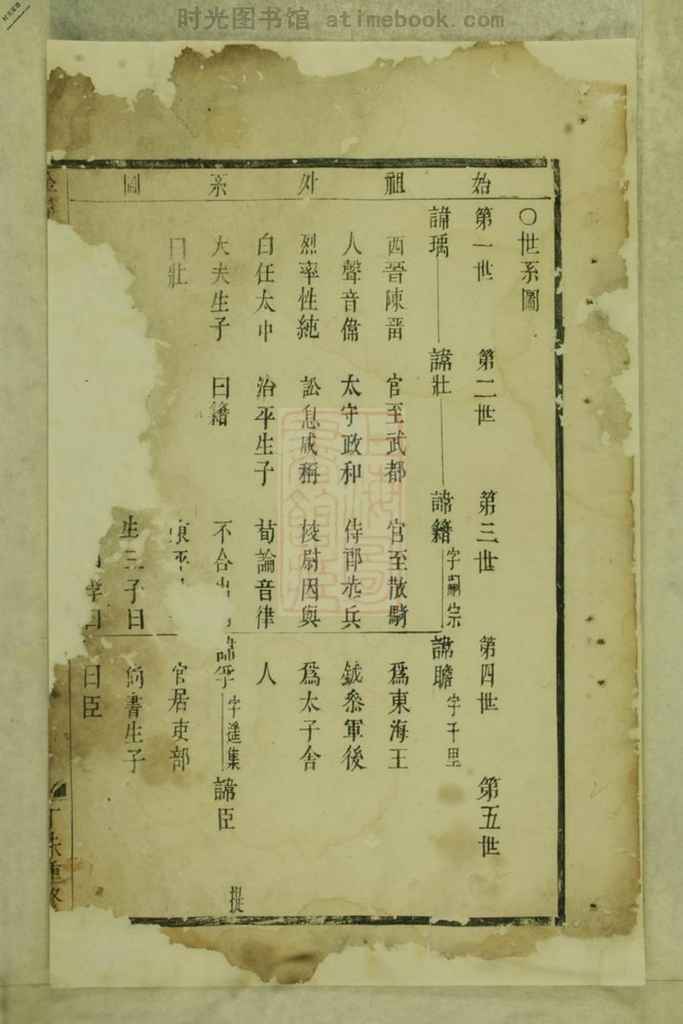 时光图书馆 atimebook.com
始祖外系圖
○世系圖
第一世 第二世 第三世 第四世 第五世
諱瑀 諱壯 諱籍 字嗣宗 諱瞻 字千里
西晉陳畱 官至武都 官至散騎 爲東海王
人聲音偹 太守政和 侍郎 兵 鉞叅軍後
烈率性純 訟息咸稱 校尉因與 爲太子舍
白任太中 治平生子 荀論音律 人
大夫生子 曰籍 不合 諱孚 字遙集 諱臣
提
曰壯 東平 官居吏部
生三子曰 尚書生子
孚曰 曰臣
重修